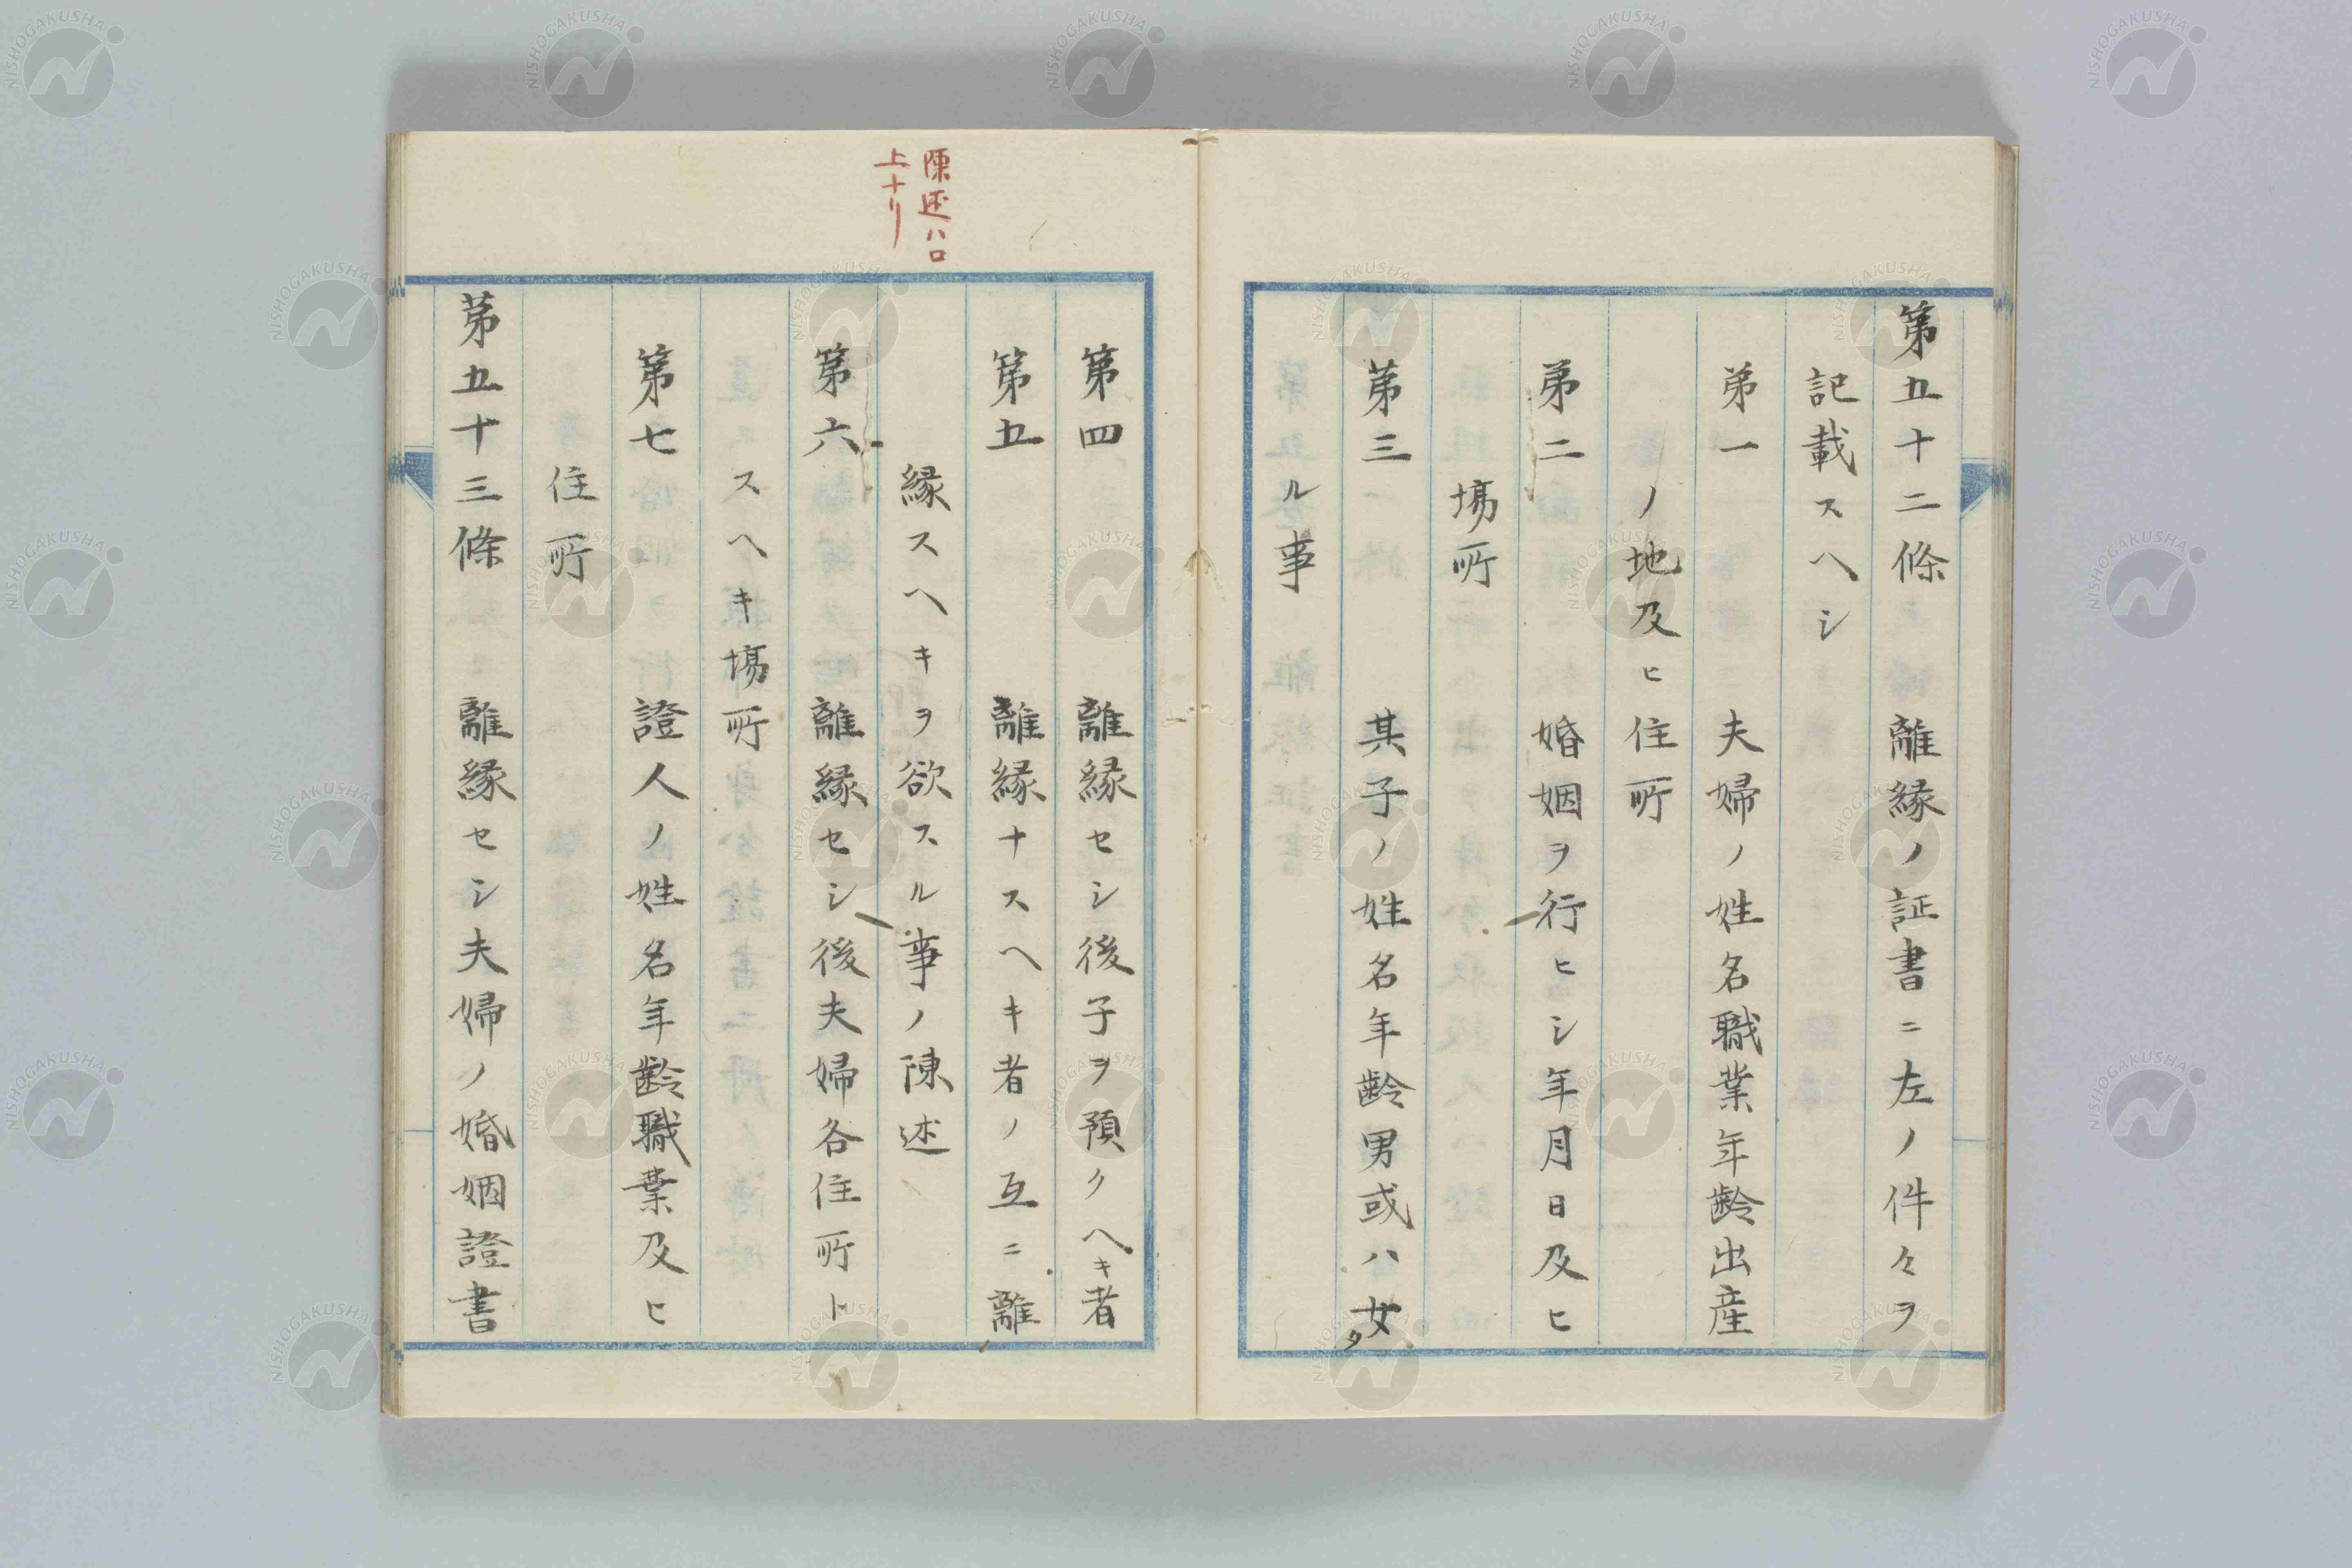 第五十二條 離縁ノ証書ニ左ノ件々ヲ
記載スヘシ
第一 夫婦ノ姓名職業年齢出産
ノ地及ヒ住所
第二 婚姻ヲ行ヒシ年月日及ヒ
場所
第三 其子ノ姓名年齢男或ハ女タ
ル事
第四 離縁セシ後子ヲ預クヘキ者
第五 離縁ナスヘキ者ノ互ニ離
縁スヘキヲ欲スル事ノ陳述
第六 離縁セシ後夫婦各住所ト
スヘキ場所
第七 證人ノ姓名年齢職業及ヒ
住所
第五十三條 離縁セシ夫婦ノ婚姻證書
陳述ハ口
上ナリ
NISHOGAKUSHA